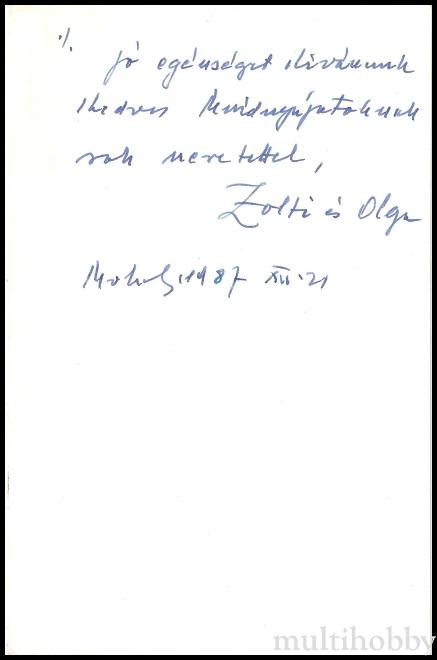 ·/.
jó egészséget kivánunk
Kedves Mindnyájatoknak
sok szeretettel,
Zolti és Olga
1987 XII. 21
multihobby